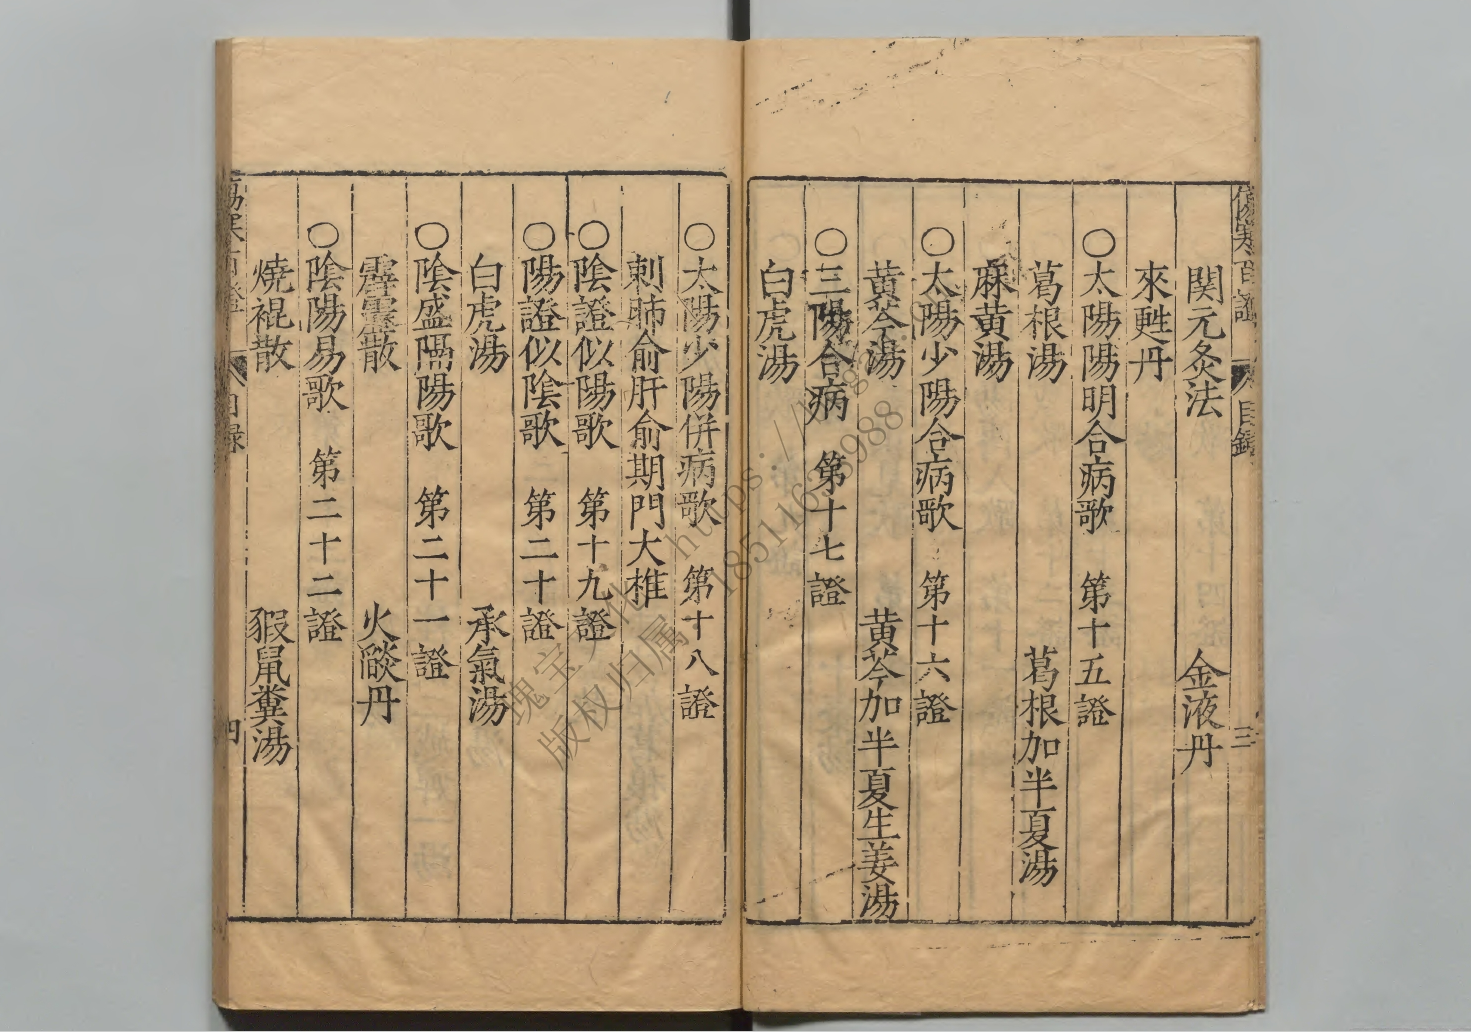 関元灸法　金液丹
來甦丹
○太陽陽明合病歌　第十五證
葛根湯　葛根加半夏湯
麻黄湯
○太陽少陽合病歌　第十六證
黄芩湯　黄芩加半夏生姜湯
○三陽合病　第十七證
白虎湯
○太陽少陽併病歌　第十八證
刺肺俞肝俞期門大椎
○陰證似陽歌　第十九證
○陽證似陰歌　第二十證
白虎湯　承氣湯
○陰盛隔陽歌　第二十一證
霹靂散　火燄丹
○陰陽易歌　第二十二證
燒裩散　豭鼠糞湯
目録　三
目録　四
瑰宝文化
版权归属
18511633988